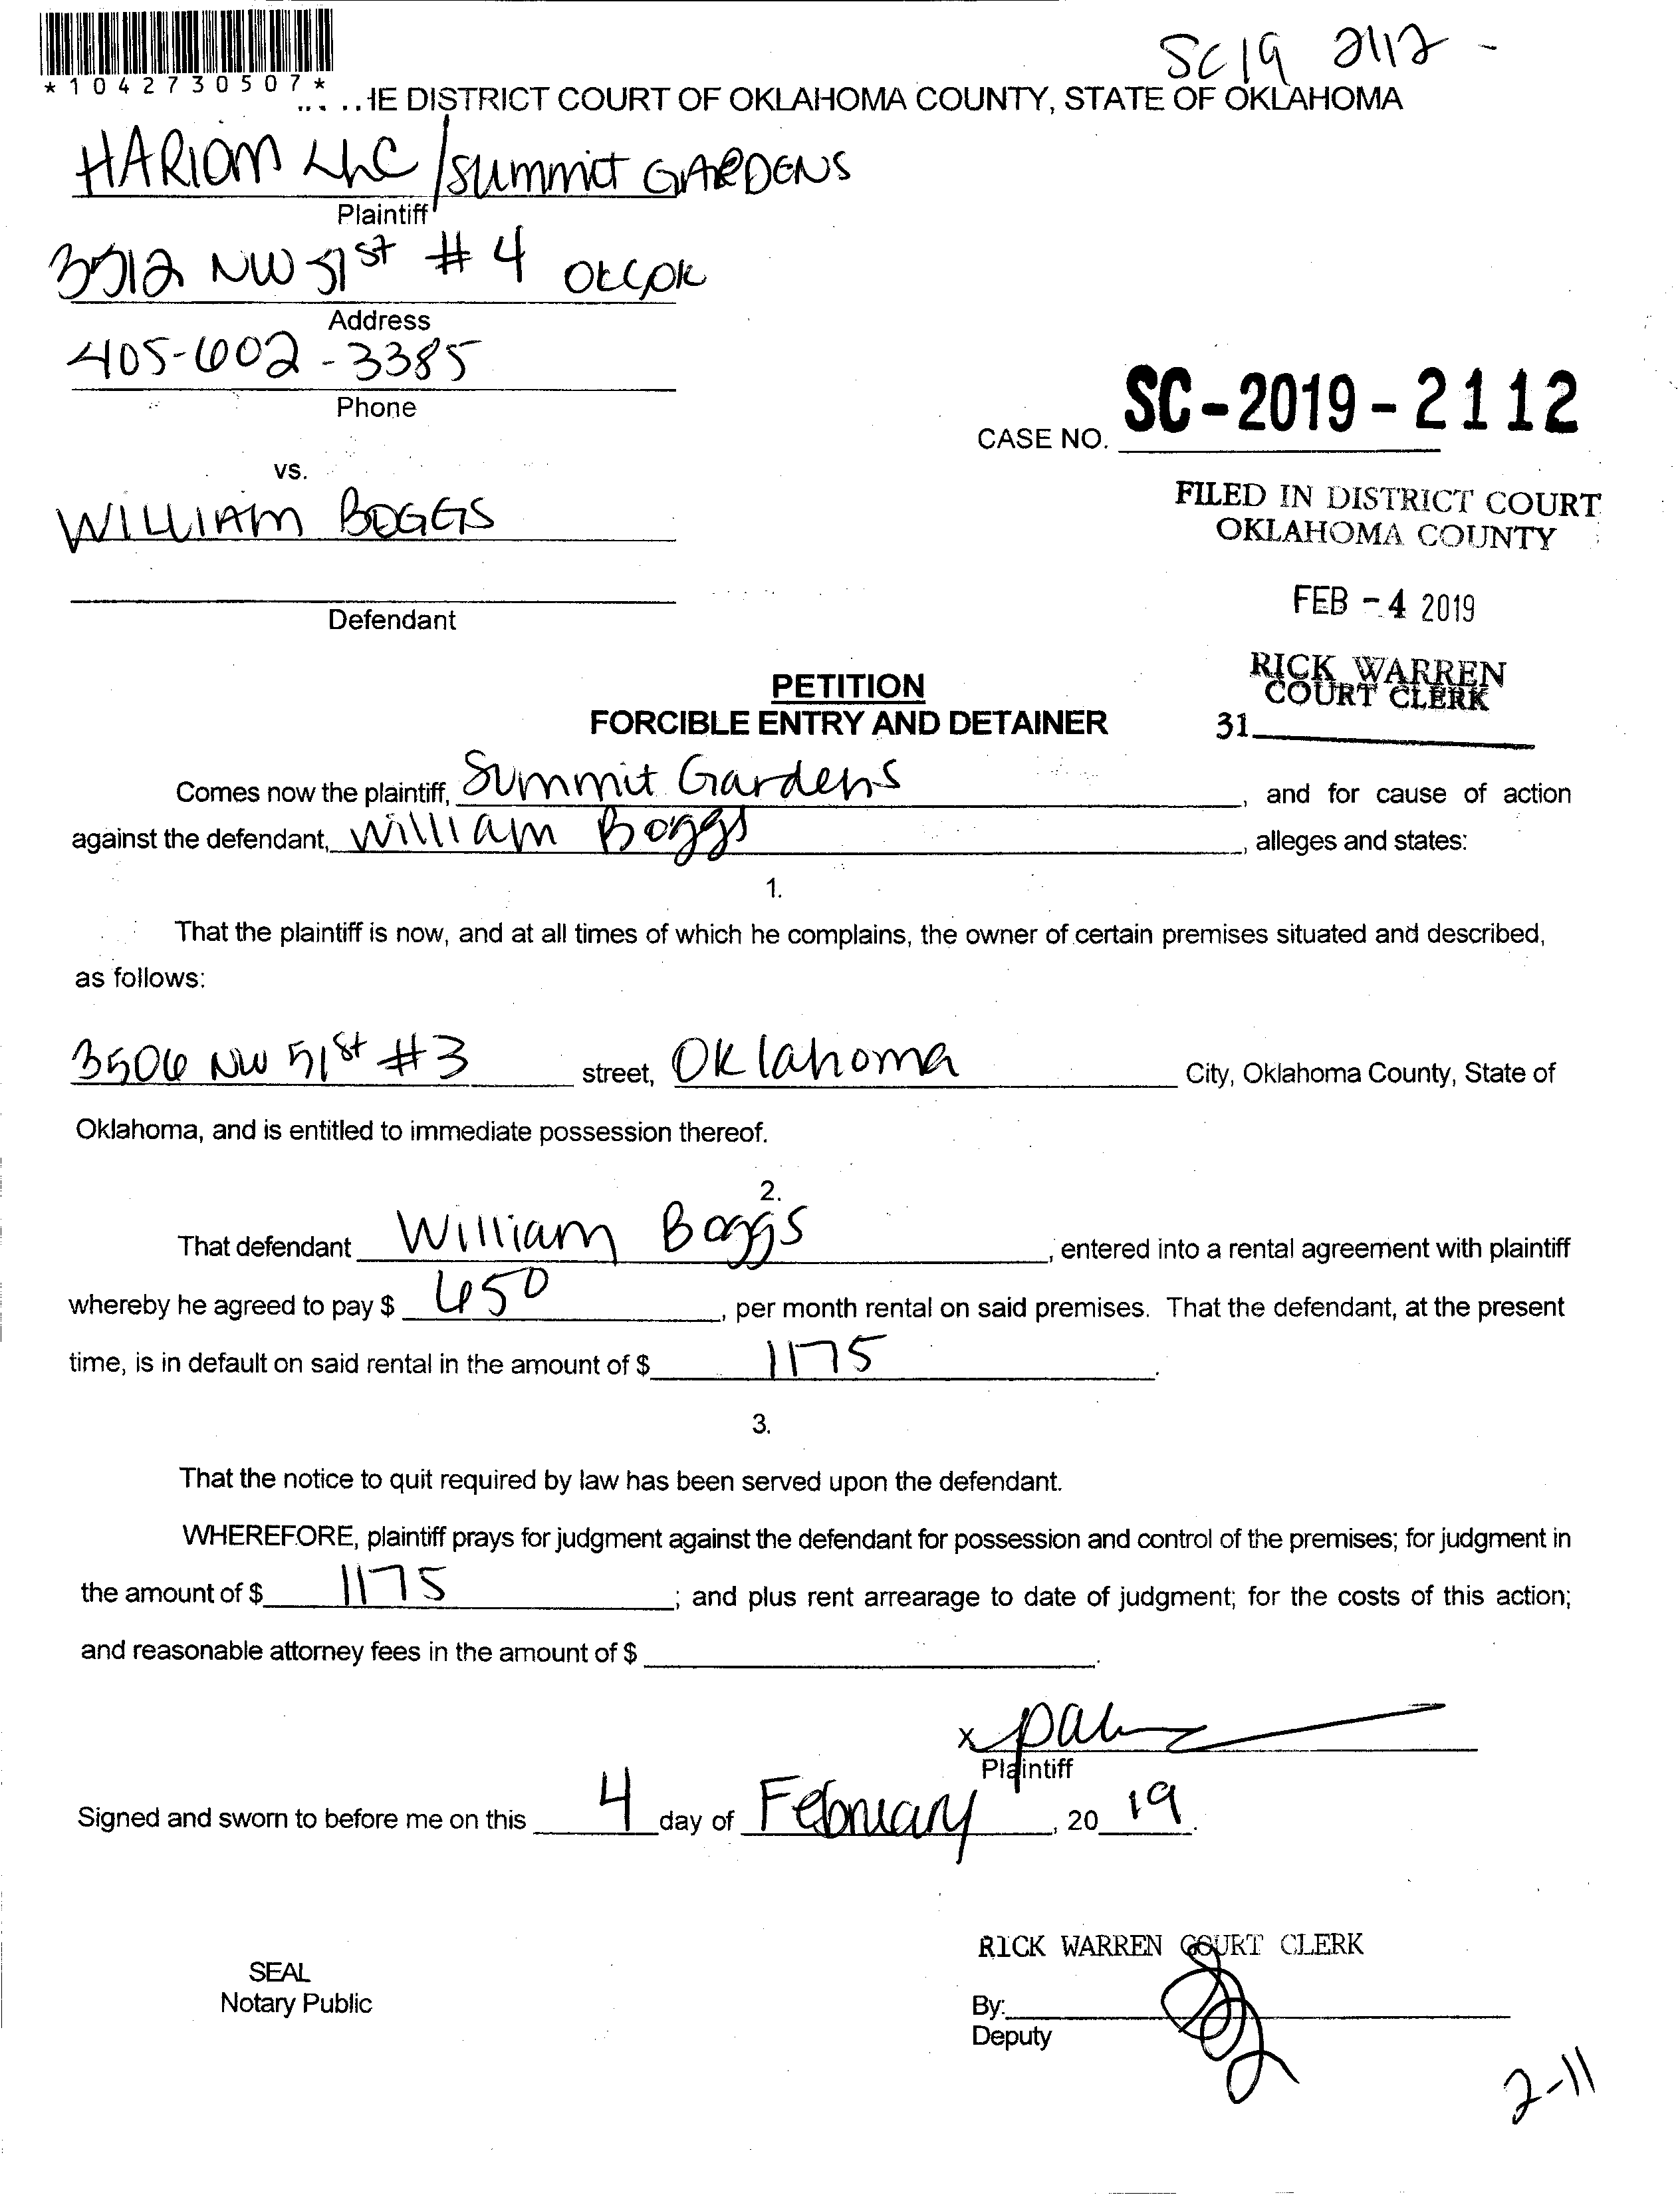 SC19 2112 -
*1042730507*
HE DISTRICT COURT OF OKLAHOMA COUNTY, STATE OF OKLAHOMA
HARIOM LLC / SUMMIT GARDENS
Plaintiff
3512 NW 51st #4 OKC OK
Address
405-602-3385
Phone
CASE NO. SC-2019-2112
vs.
FILED IN DISTRICT COURT
OKLAHOMA COUNTY
WILLIAM BOGGS
FEB -4 2019
Defendant
RICK WARREN
COURT CLERK
31
PETITION
FORCIBLE ENTRY AND DETAINER
Comes now the plaintiff, Summit Gardens, and for cause of action
against the defendant, William Boggs, alleges and states:
1.
That the plaintiff is now, and at all times of which he complains, the owner of certain premises situated and described,
as follows:
3506 NW 51st #3 street, Oklahoma City, Oklahoma County, State of
Oklahoma, and is entitled to immediate possession thereof.
2.
That defendant William Boggs, entered into a rental agreement with plaintiff
whereby he agreed to pay $ 650, per month rental on said premises. That the defendant, at the present
time, is in default on said rental in the amount of $ 1175.
3.
That the notice to quit required by law has been served upon the defendant.
WHEREFORE, plaintiff prays for judgment against the defendant for possession and control of the premises; for judgment in
the amount of $ 1175; and plus rent arrearage to date of judgment; for the costs of this action;
and reasonable attorney fees in the amount of $ .
x
Plaintiff
Signed and sworn to before me on this 4 day of February, 20 19.
RICK WARREN COURT CLERK
SEAL
Notary Public
By:
Deputy
2-11